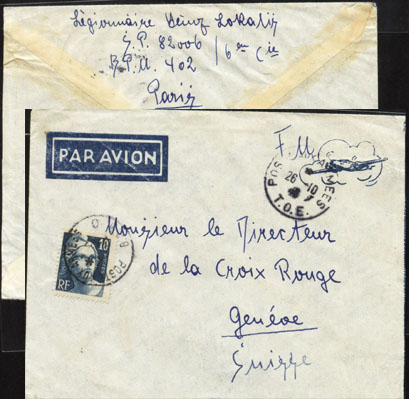 Légionnaire
S.P. 82006 / 6eme Cie
B.P.M. 402
Paris
PAR AVION
F.M.
POSTES ARMEES
26-10
T.O.E.
10
RF
Monsieur le Directeur
de la Croix Rouge
Genéve
Suisse